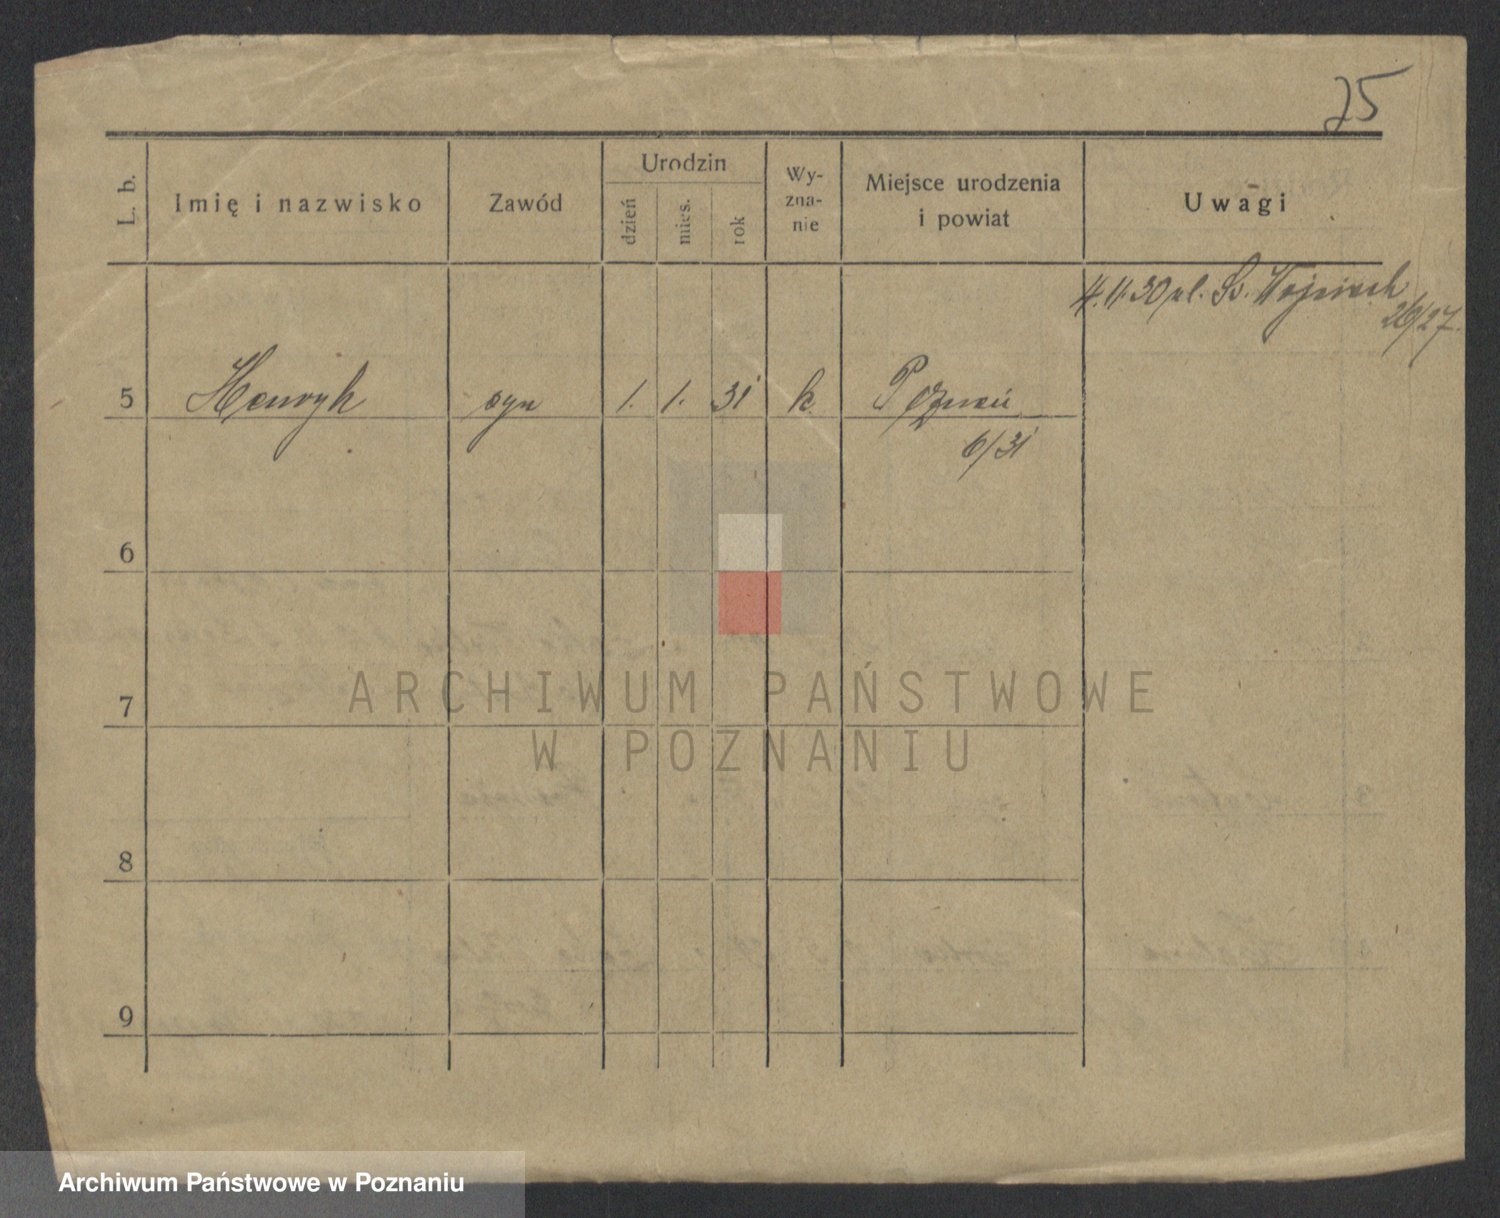 25
L. b.
Imię i nazwisko
Zawód
Urodzin
dzień
mies.
rok
Wy-
zna-
nie
Miejsce urodzenia
i powiat
Uwagi
4.11.30 pl. Św. Wojciech
26/27.
5 Henryk syn 1. 1. 31 k. Poznań
6/31
6
7
8
9
ARCHIWUM PAŃSTWOWE
W POZNANIU
Archiwum Państwowe w Poznaniu